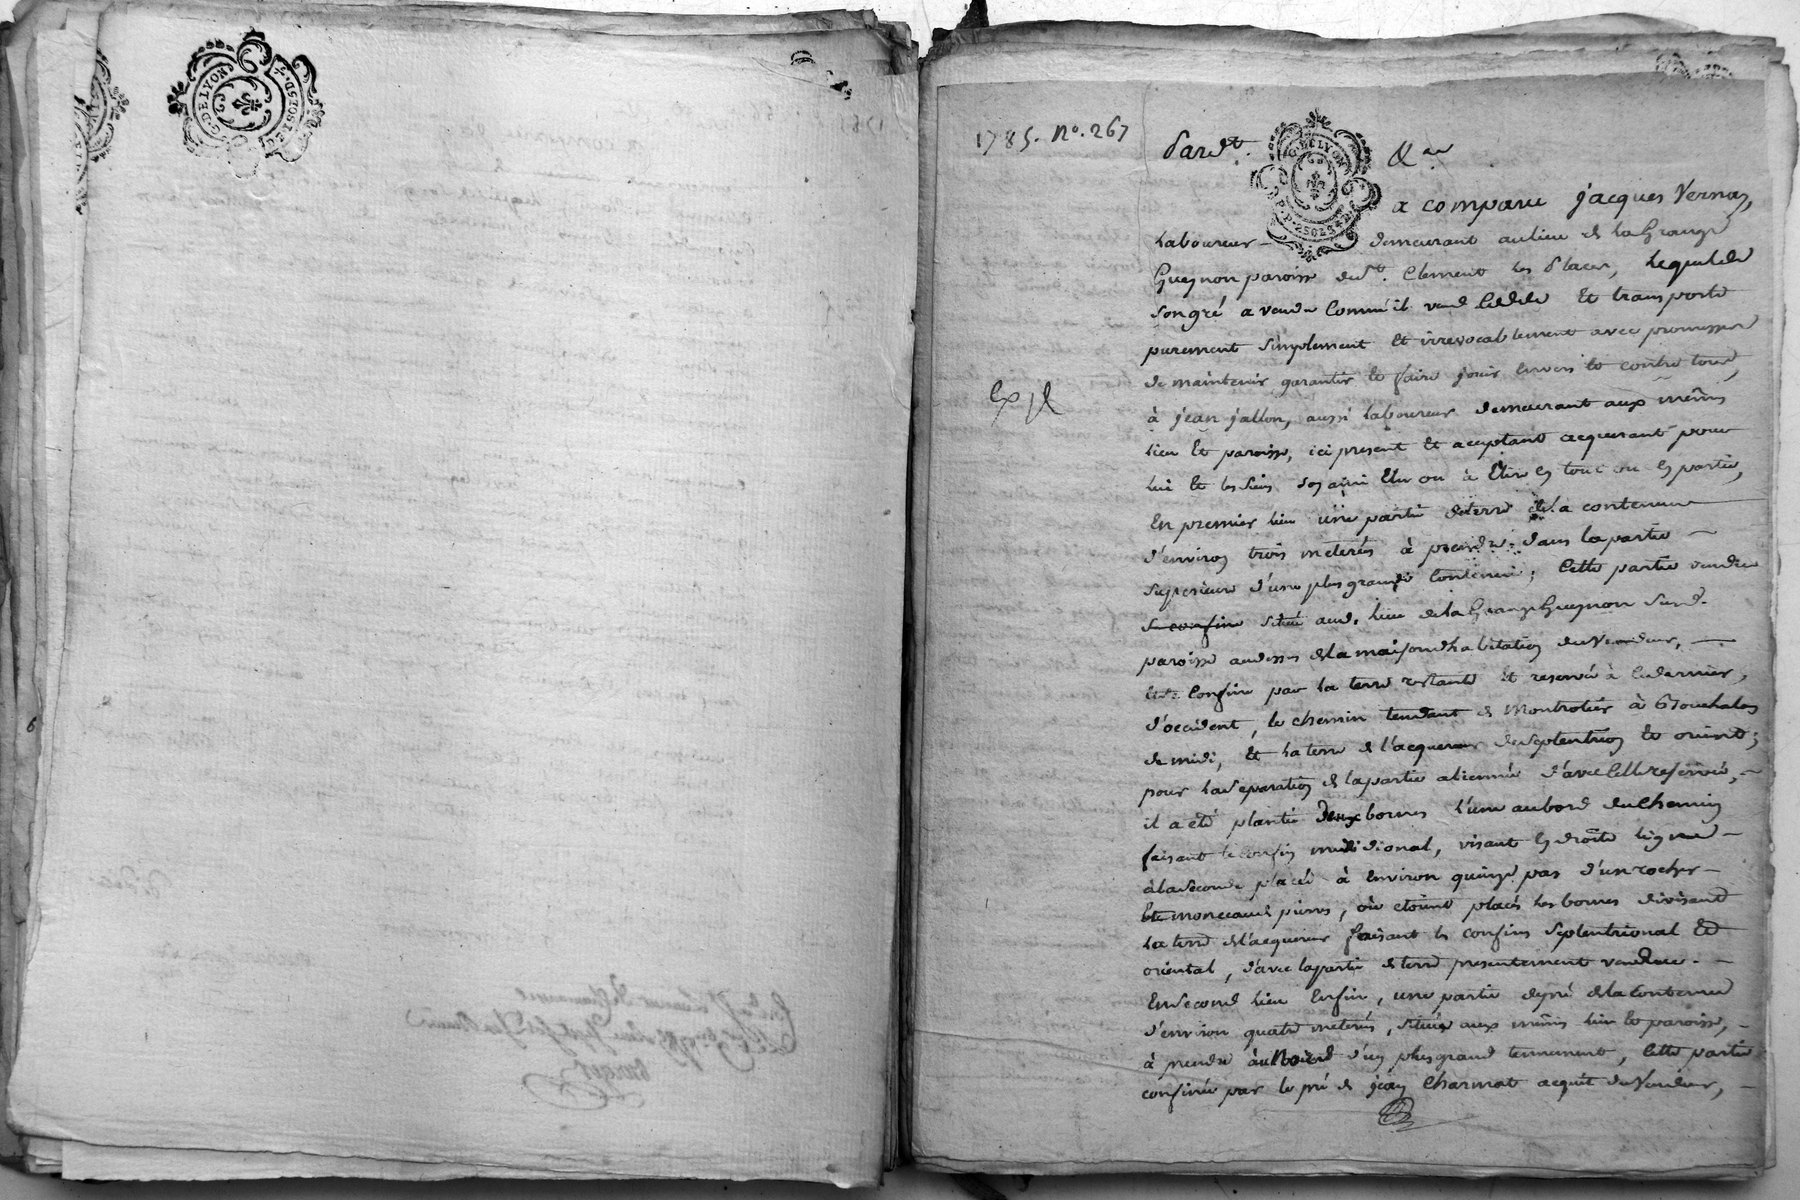 G. DE LYON
1785. N°. 267
Pardt. &a
G. DE LYON
a comparu jacques Vernay,
Laboureur demeurant au lieu de la Grange
Gueynon paroisse de St. Clement les Places, Lequel de
son gré a vendu comme il vend cedde et transporte
purement simplement et irrevocablement avec promesse
de maintenir garantir et faire jouir envers et contre tous,
à jean jallon, aussi laboureur demeurant aux mêmes
Exp
lieu et paroisse, ici present et acceptant acquerant pour
lui et les siens son ami elu ou à elire en tout ou en partie,
En premier lieu une partie de terre de la contenue
d'environ trois meterés à prendre dans la partie
superieure d'une plus grande contenue; Cette partie vendue
se confine située aud. lieu de la Grange Gueynon susd.
paroisse au dessus de la maison d'habitation du Vendeur,
Confine par la terre restante et reservée à ce dernier,
d'occident, le chemin tendant de Montrotier à
de midi, et la terre de l'acquereur de septentrion et orient;
pour la separation de la partie alienée d'avec celle reservée,
il a été planté Deux bornes l'une au bord du chemin
faisant le confin meridional, visant en droite ligne
à la seconde placée à environ quinze pas d'un rocher
et monceau de pierres, où etoient placés les bornes divisant
la terre de l'acquereur faisant les confins septentrional et
oriental, d'avec la partie de terre presentement vendue.
En second lieu Enfin, une partie de pré de la contenue
d'environ quatre meterés, située aux mêmes lieu et paroisse,
à prendre au Nord d'un plus grand tennement, Cette partie
confinée par le pré de jean Charmot acquit du Vendeur,